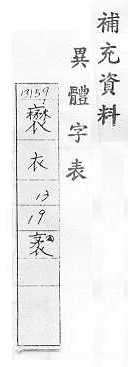 補充資料
異體字表
13159
衣
13
19
袤